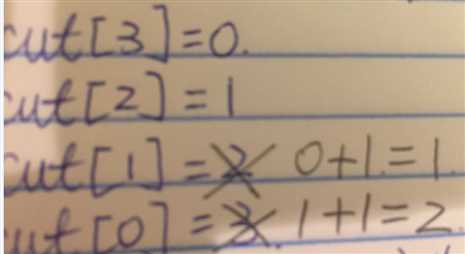 cut[3]=0.
cut[2]=1
cut[1]=2 0+1.=1.
cut[0]=3. 1+1=2